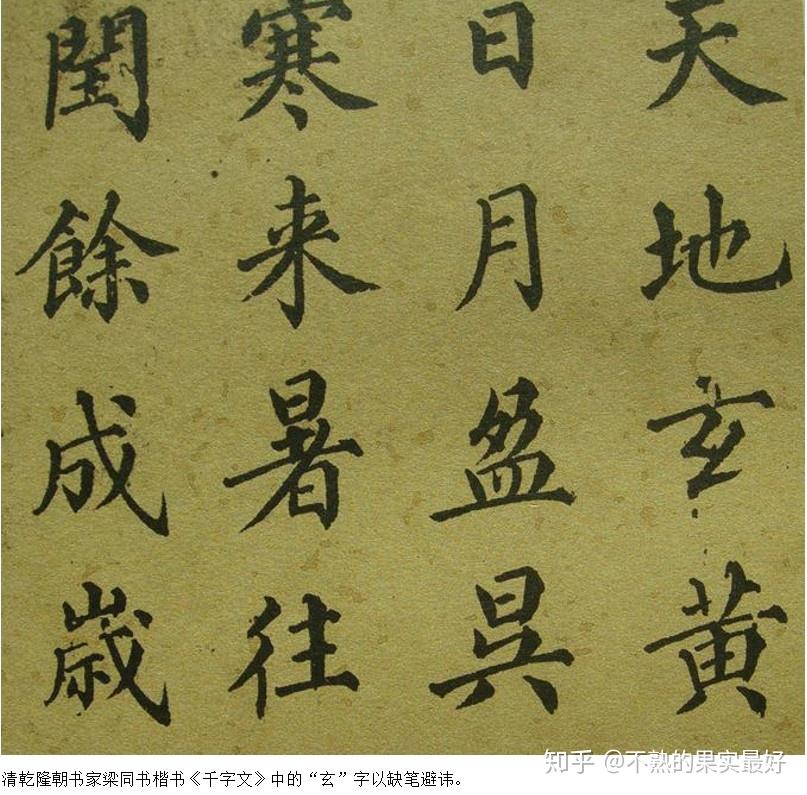 天地玄黄
日月盈昃
寒来暑往
閏餘成歲
知乎 @不熟的果实最好
清乾隆朝书家梁同书楷书《千字文》中的“玄”字以缺笔避讳。